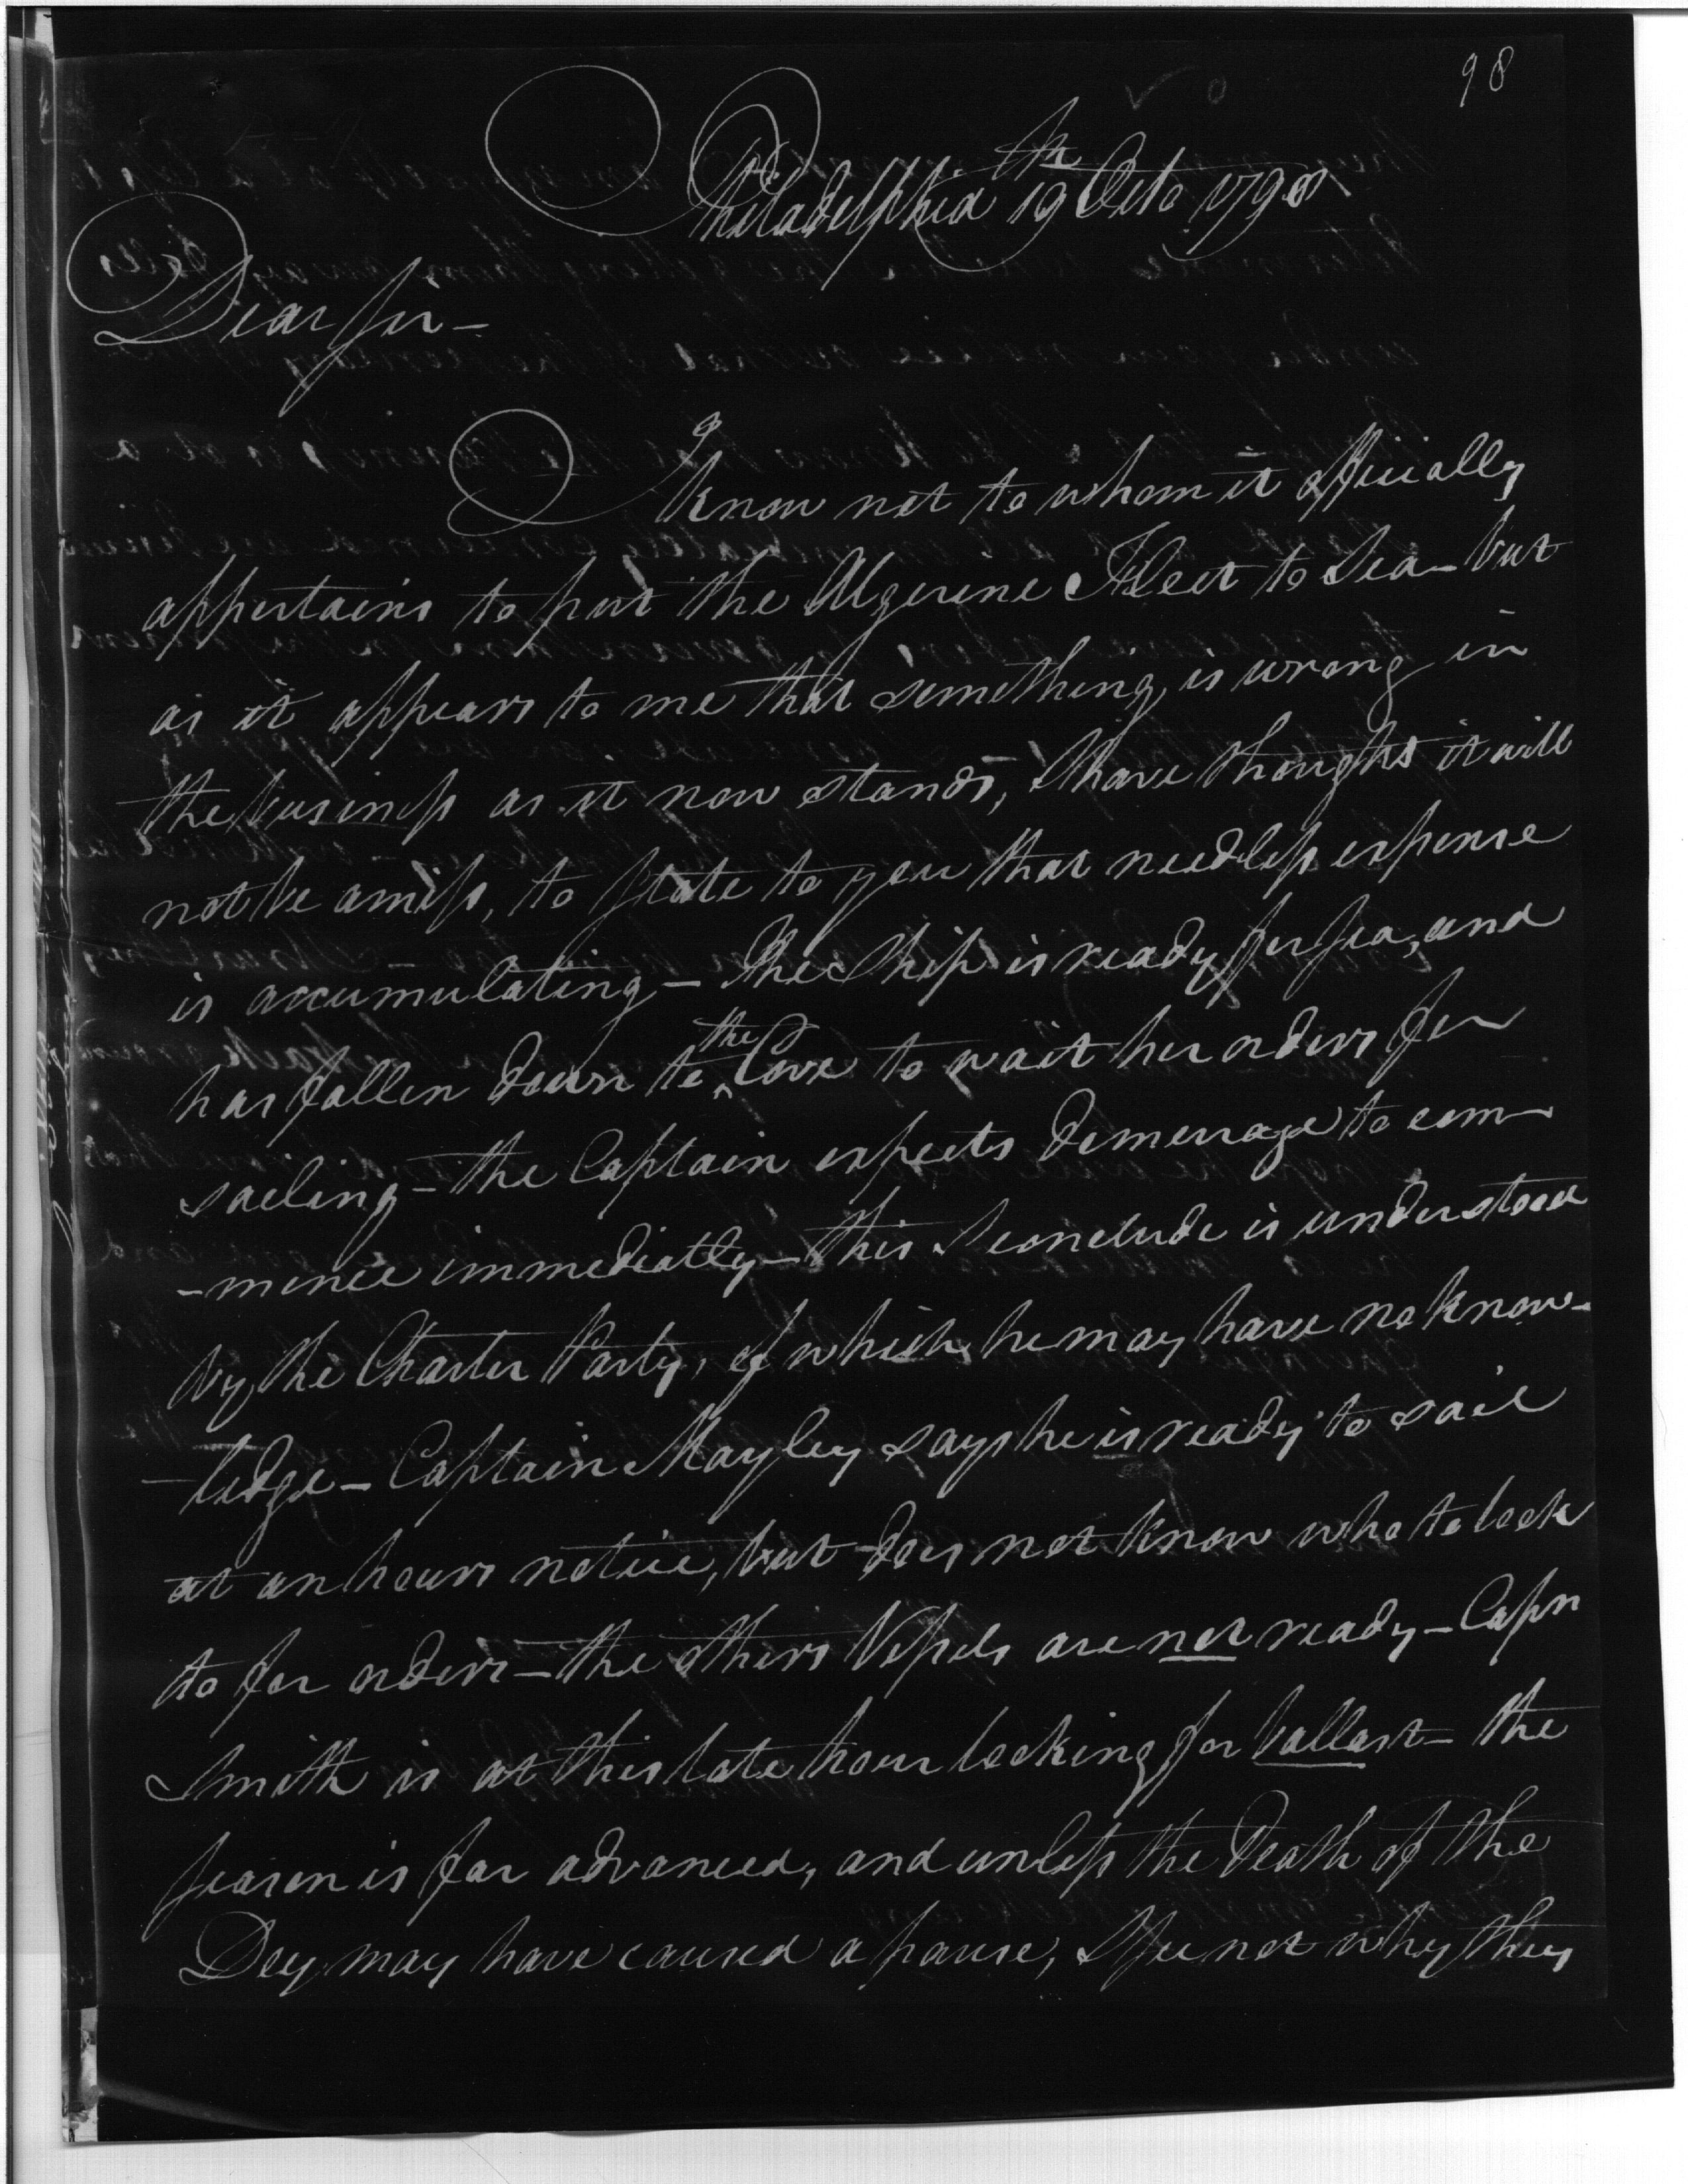 98
Philadelphia 19th Octo 1798
Dear Sir—
I know not to whom it officially
appertains to put the Algerine Fleet to Sea— but
as it appears to me that something is wrong in
the business as it now stands, I have thought it will
not be amiss, to State to you that needless expense
is accumulating— The Ship is ready for Sea, and
has fallen down to the Cove to wait her orders for
sailing— the Captain expects Demerrage to com
-mence immediatly— this I conclude is understood
by the Charter Party, of which he may have no know-
-ledge— Captain Mayley says he is ready to sail
at an hours notice, but does not know who to look
to for orders— the others Vessels are not ready— Capn
Smith is at this late hour looking for ballast— the
Season is far advanced, and unless the Death of the
Dey may have caused a pause, I see not why they